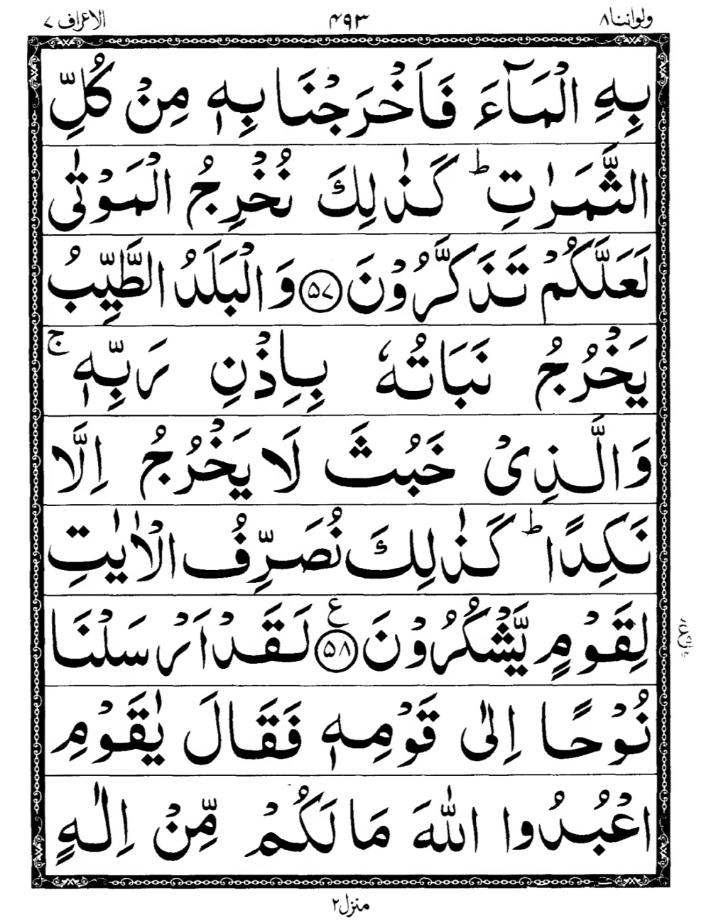 ولواننا۸ ۴۹۳ الاعراف ۷
بِهِ الْمَآءَ فَاَخْرَجْنَا بِهٖ مِنْ كُلِّ
الثَّمَرٰتِ ؕ كَذٰلِكَ نُخْرِجُ الْمَوْتٰى
لَعَلَّكُمْ تَذَكَّرُوْنَ ۝۵۷ وَالْبَلَدُ الطَّيِّبُ
يَخْرُجُ نَبَاتُهٗ بِاِذْنِ رَبِّهٖ ۚ
وَالَّذِىْ خَبُثَ لَا يَخْرُجُ اِلَّا
نَكِدًا ؕ كَذٰلِكَ نُصَرِّفُ الْاٰيٰتِ
لِقَوْمٍ يَّشْكُرُوْنَ ۝۵۸ ع لَقَدْ اَرْسَلْنَا
نُوْحًا اِلٰى قَوْمِهٖ فَقَالَ يٰقَوْمِ
اعْبُدُوا اللّٰهَ مَا لَكُمْ مِّنْ اِلٰهٍ
منزل۲